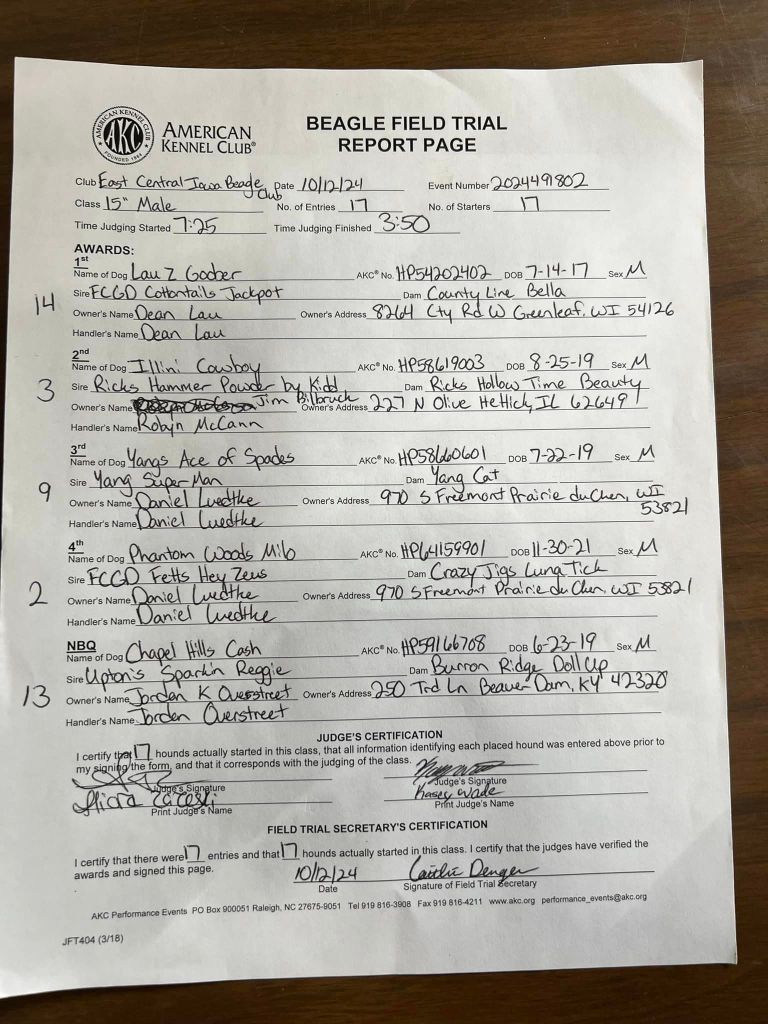 AMERICAN KENNEL CLUB
AKC
FOUNDED 1884
AMERICAN
KENNEL CLUB®
BEAGLE FIELD TRIAL
REPORT PAGE
Club East Central Iowa Beagle Club Date 10/12/24 Event Number 2024491802
Class 15" Male No. of Entries 17 No. of Starters 17
Time Judging Started 7:25 Time Judging Finished 3:50
AWARDS:
1st
Name of Dog Lau Z Goober AKC® No. HP54202402 DOB 7-14-17 Sex M
14
Sire FCGD Cottontails Jackpot Dam County Line Bella
Owner's Name Dean Lau Owner's Address 8264 Cty Rd W Greenleaf, WI 54126
Handler's Name Dean Lau
2nd
Name of Dog Illini Cowboy AKC® No. HP58619003 DOB 8-25-19 Sex M
3
Sire Ricks Hammer Powder by Kidd Dam Ricks Hollow Time Beauty
Owner's Name Jim Bilbruck Owner's Address 227 N Olive Hettick, IL 62649
Handler's Name Robyn McCann
3rd
Name of Dog Yangs Ace of Spades AKC® No. HP58660601 DOB 7-22-19 Sex M
9
Sire Yang Super Man Dam Yang Cat
Owner's Name Daniel Luedtke Owner's Address 970 S Freemont Prairie du Chen, WI
53821
Handler's Name Daniel Luedtke
4th
Name of Dog Phantom Woods Milo AKC® No. HP64159901 DOB 11-30-21 Sex M
2
Sire FCGD Fetts Hey Zeus Dam Crazy Jigs Lung Tick
Owner's Name Daniel Luedtke Owner's Address 970 S Freemont Prairie du Chen, WI 53821
Handler's Name Daniel Luedtke
NBQ
Name of Dog Chapel Hills Cash AKC® No. HP59166708 DOB 6-23-19 Sex M
13
Sire Upton's Sparkin Reggie Dam Burron Ridge Doll Up
Owner's Name Jorden K Overstreet Owner's Address 250 Ln Beaver Dam, KY 42320
Handler's Name Jorden Overstreet
JUDGE'S CERTIFICATION
I certify that 17 hounds actually started in this class, that all information identifying each placed hound was entered above prior to
my signing the form, and that it corresponds with the judging of the class.
Judge's Signature Judge's Signature
Kasey Wade
Print Judge's Name Print Judge's Name
FIELD TRIAL SECRETARY'S CERTIFICATION
I certify that there were 17 entries and that 17 hounds actually started in this class. I certify that the judges have verified the
awards and signed this page. 10/12/24 Caitlin Denger
Date Signature of Field Trial Secretary
AKC Performance Events PO Box 900051 Raleigh, NC 27675-9051 Tel 919 816-3908 Fax 919 816-4211 www.akc.org performance_events@akc.org
JFT404 (3/18)